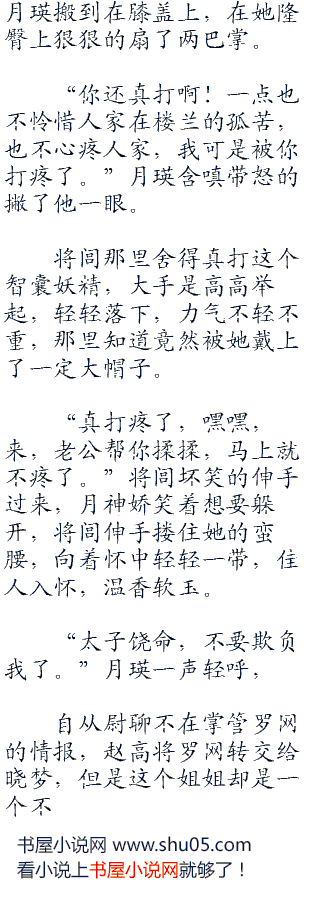 月瑛搬到在膝盖上，在她隆
臀上狠狠的扇了两巴掌。
“你还真打啊！一点也
不怜惜人家在楼兰的孤苦，
也不心疼人家，我可是被你
打疼了。”月瑛含嗔带怒的
撇了他一眼。
将闾那里舍得真打这个
智囊妖精，大手是高高举
起，轻轻落下，力气不轻不
重，那里知道竟然被她戴上
了一定大帽子。
“真打疼了，嘿嘿，
来，老公帮你揉揉，马上就
不疼了。”将闾坏笑的伸手
过来，月神娇笑着想要躲
开，将闾伸手搂住她的蛮
腰，向着怀中轻轻一带，佳
人入怀，温香软玉。
“太子饶命，不要欺负
我了。”月瑛一声轻呼，
自从尉聊不在掌管罗网
的情报，赵高将罗网转交给
晓梦，但是这个姐姐却是一
个不
书屋小说网 www.shu05.com
看小说上书屋小说网就够了！